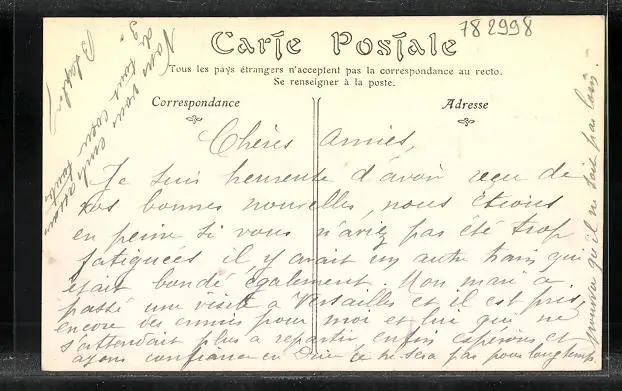 78 2998
Carte Postale
Tous les pays étrangers n'acceptent pas la correspondance au recto.
Se renseigner à la poste.
Correspondance
Adresse
Chères Amies,
Je suis heureuse d'avoir reçu de
vos bonnes nouvelles, nous étions
en peine si vous n'aviez pas été trop
fatiguées il y avait un autre tram qui
était bondé également. Mon mari a
passé une visite a Versailles et il est pris,
encore des ennuis pour moi et lui qui ne
s'attendait plus a repartir enfin espérons et
ayons confiance en Dieu ce ne sera pas pour longtemps
pourvu qu'il ne soit pas loin.
Nous vous embrassons
de tout cœur toutes